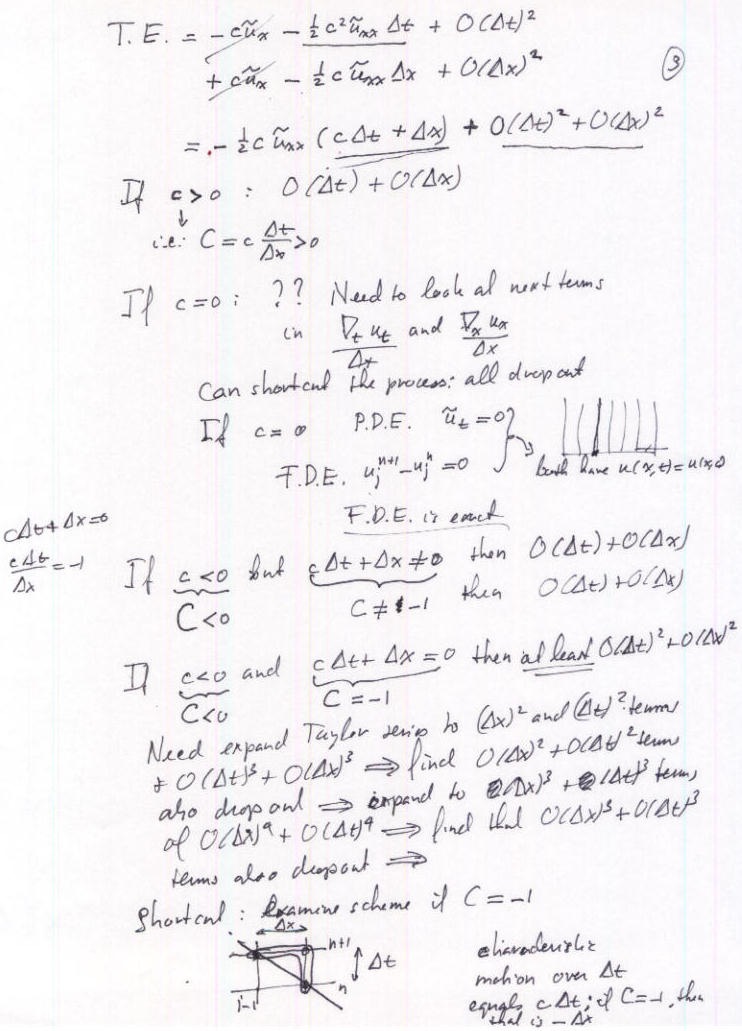 T.E. = - cũₓ - ½ c² ũₓₓ Δt + O(Δt)²
+ cũₓ - ½ c ũₓₓ Δx + O(Δx)²
③
= - ½ c ũₓₓ (cΔt + Δx) + O(Δt)² + O(Δx)²
If c>0 : O(Δt) + O(Δx)
↓
i.e: C = c Δt/Δx > 0
If c=0 : ?? Need to look at next terms
in ∇ₜ uₜ/Δx and ∇ₓ uₓ/Δx
Can shortcut the process: all drop out
If c = 0 P.D.E. ũₜ = 0
F.D.E. uⱼⁿ⁺¹ - uⱼⁿ = 0
both have u(x,t) = u(x,0)
F.D.E. is exact
cΔt + Δx = 0
cΔt/Δx = -1
If c<0 but cΔt + Δx ≠ 0 then O(Δt) + O(Δx)
C<0 C ≠ -1 then O(Δt) + O(Δx)
If c<0 and cΔt + Δx = 0 then at least O(Δt)² + O(Δx)²
C<0 C = -1
Need expand Taylor series to (Δx)² and (Δt)² terms
+ O(Δt)³ + O(Δx)³ ⇒ find O(Δx)² + O(Δt)² terms
also drop out ⇒ expand to (Δx)³ + (Δt)³ terms
of O(Δx)⁴ + O(Δt)⁴ ⇒ find that O(Δx)³ + O(Δt)³
terms also dropout ⇒
Shortcut : Examine scheme if C = -1
Δx
n+1
Δt
n
j-1
characteristic
motion over Δt
equals cΔt; if C=-1, then
that is - Δx